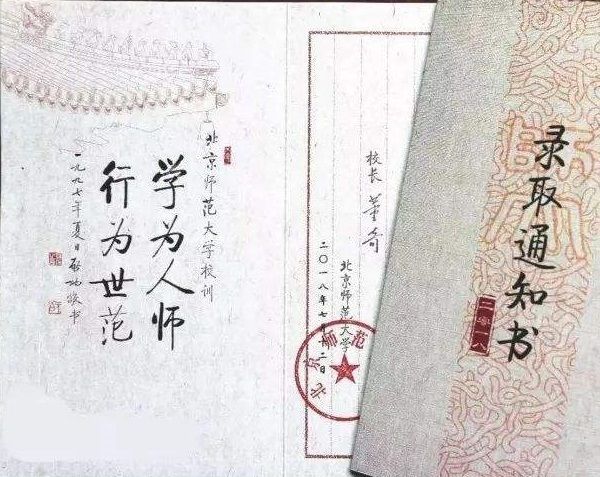 北京师范大学校训
学为人师
行为世范
一九九七年夏日 启功敬书
校长 董奇
北京师范大学
二〇一八年七月十二日
北京师范
录取通知书
二零一八